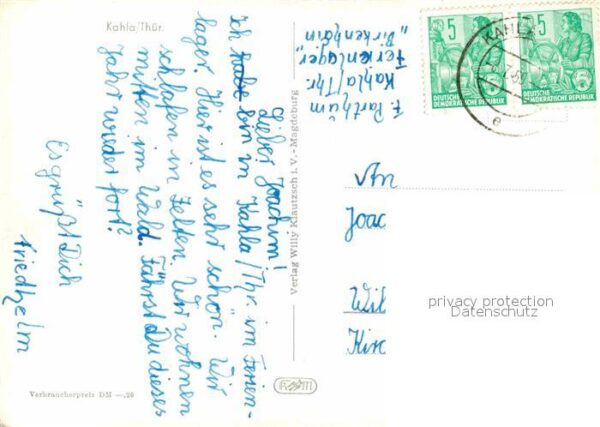 Kahla/Thür.
Lieber Joachim!
Ich habe bin in Kahla/Thr. im Ferien-
lager. Hier ist es sehr schön. Wir
schlafen in Zelten. Wir wohnen
mitten im Wald. Fährst Du dieses
Jahr wieder fort?
Es grüßt Dich
Friedhelm
Verbraucherpreis DM —,20
Verlag Willy Klautzsch i. V. - Magdeburg
F. Parthum
Kahla/Thr.
Ferienlager
„Birkenhain"
KAHLA
e
5
DEUTSCHE
DEMOKRATISCHE REPUBLIK
5
DEUTSCHE
DEMOKRATISCHE REPUBLIK
An
Joac
Wil
Kirc
privacy protection
Datenschutz